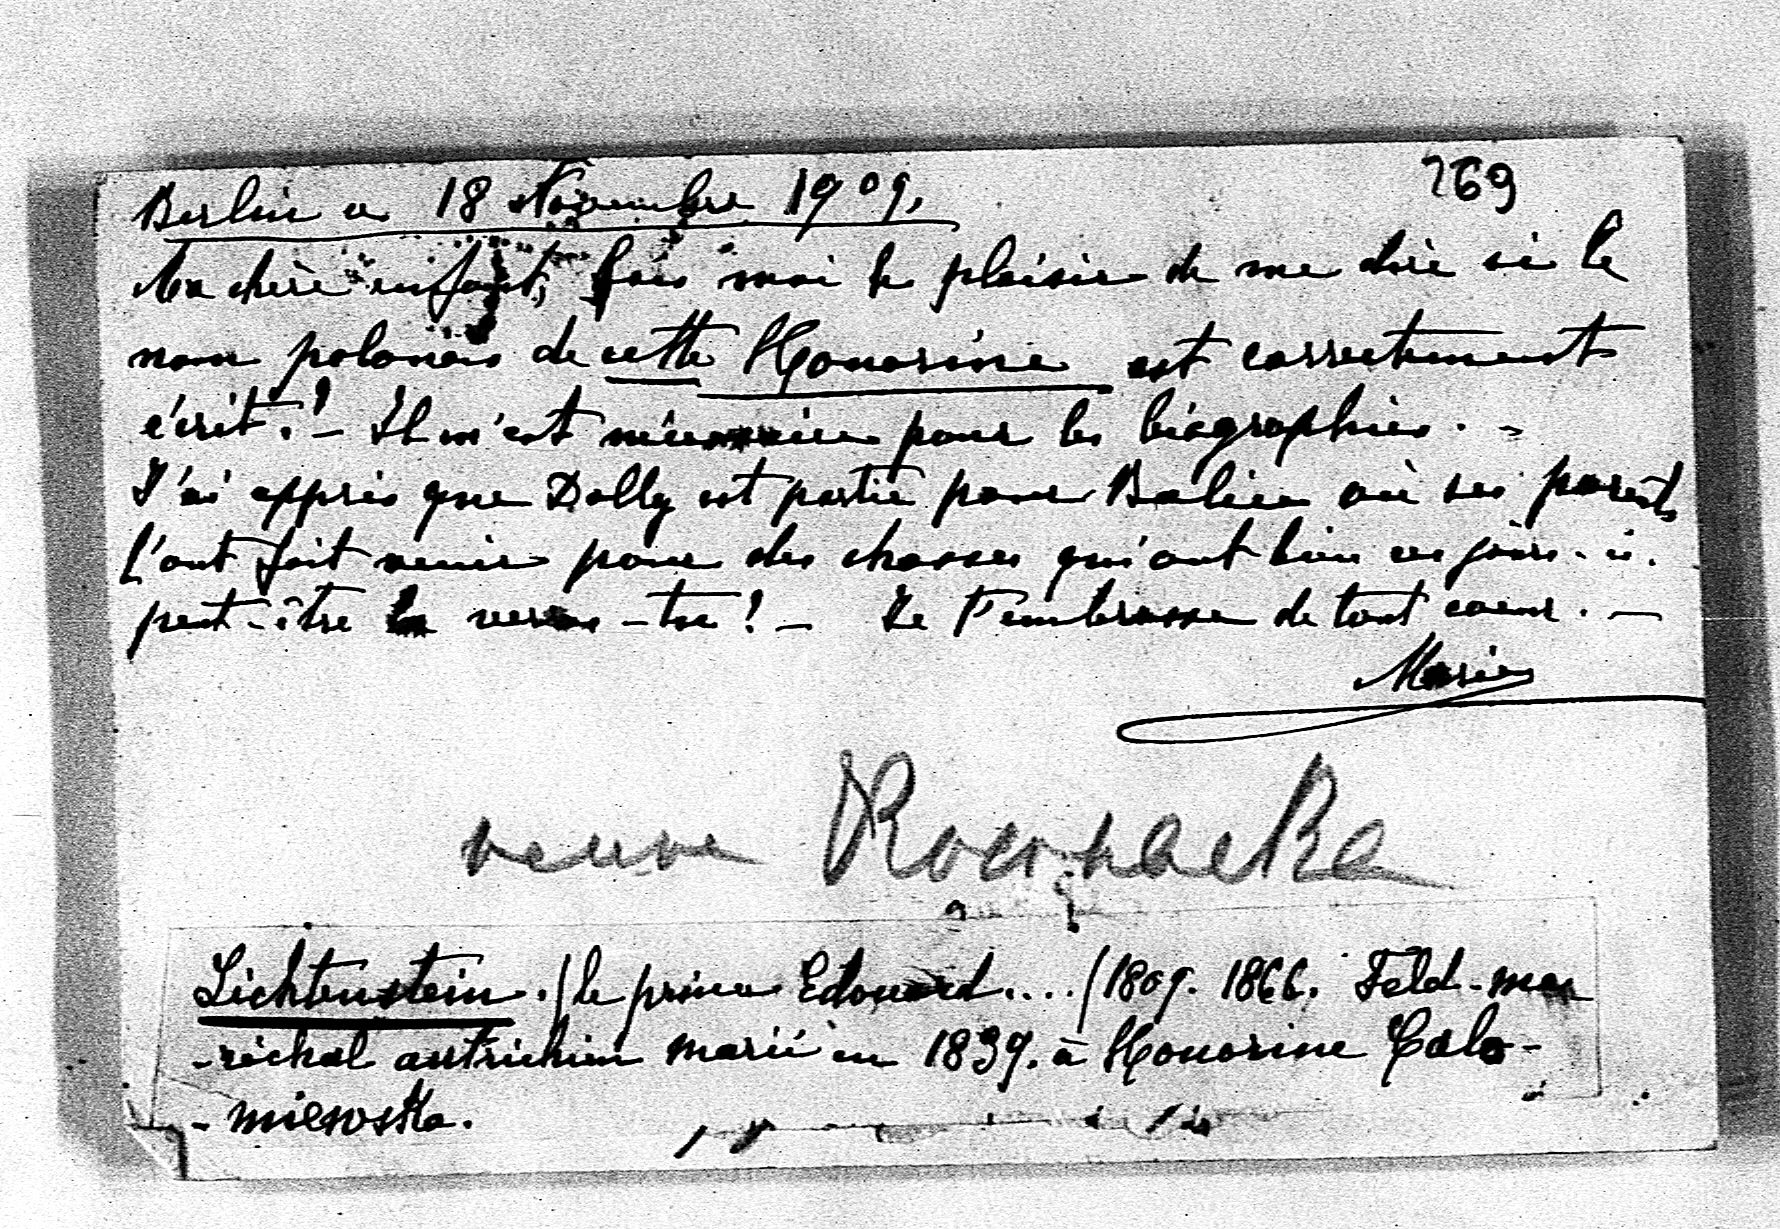 769
Berlin ce 18 Novembre 1909.
Ma chère enfant, fais moi le plaisir de me dire si le
nom polonais de cette Honorine est correctement
écrit. ! – Il m'est nécessaire pour les biographies. –
J'ai appris que Dolly est partie pour Balice où ses parents
l'ont fait venir pour des chasses qui ont lieu ces jours-ci.
peut-être la verras-tu ! – Je t'embrasse de tout coeur. –
Marie
veuve
Lichtenstein. / le prince Edouard.... / 1809. 1866. Feld-ma
-réchal autrichien marié en 1839. à Honorine Colo-
-niewska.